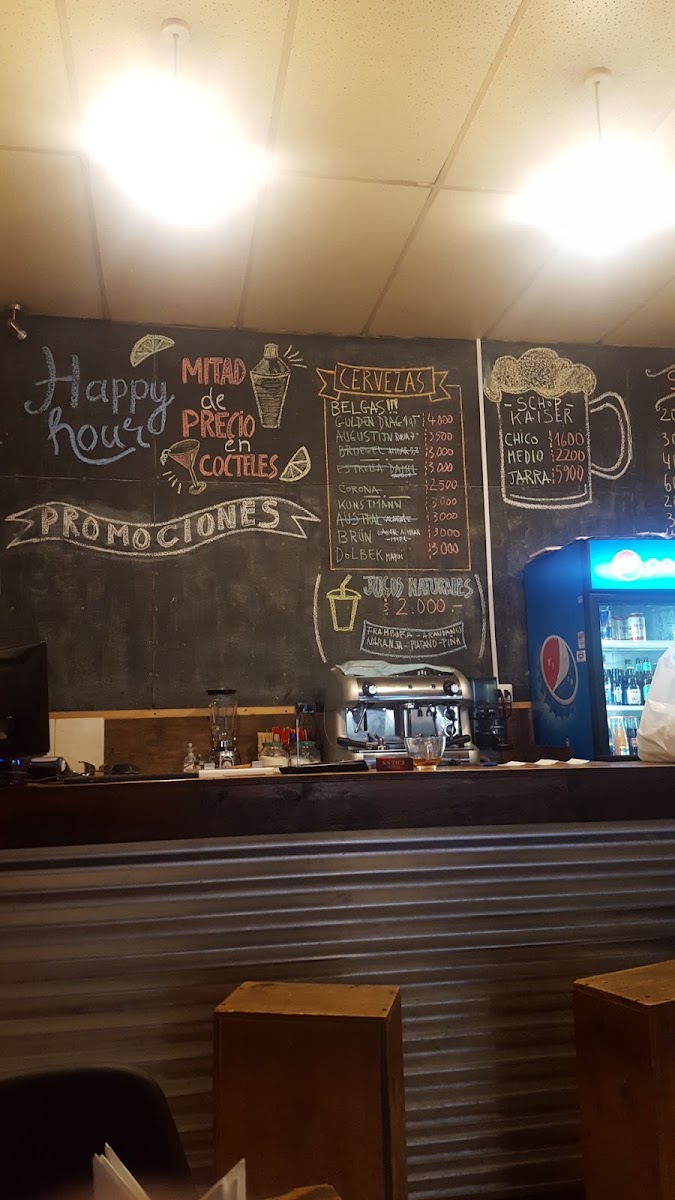 Happy
hour
MITAD
de
PRECIO
en
COCTELES
PROMOCIONES
CERVEZAS
BELGAS!!!
GULDEN DRAGAOT $4000
AUGUSTIJN $3500
BRUEGEL $3000
ESTRELLA DAMM $3.000
CORONA $2500
KUNSTMANN $3.000
AUSTRAL CALAFATE $3000
BRÜN LAGER-AMBAR $3000
DOLBEK MAQUI $3.000
JUGOS NATURALES
$2.000.-
FRAMBUESA - ARANDANO
NARANJA - PLATANO - PIÑA
- SCHOP -
KAISER
CHICO $1600
MEDIO $2200
JARRA $5900